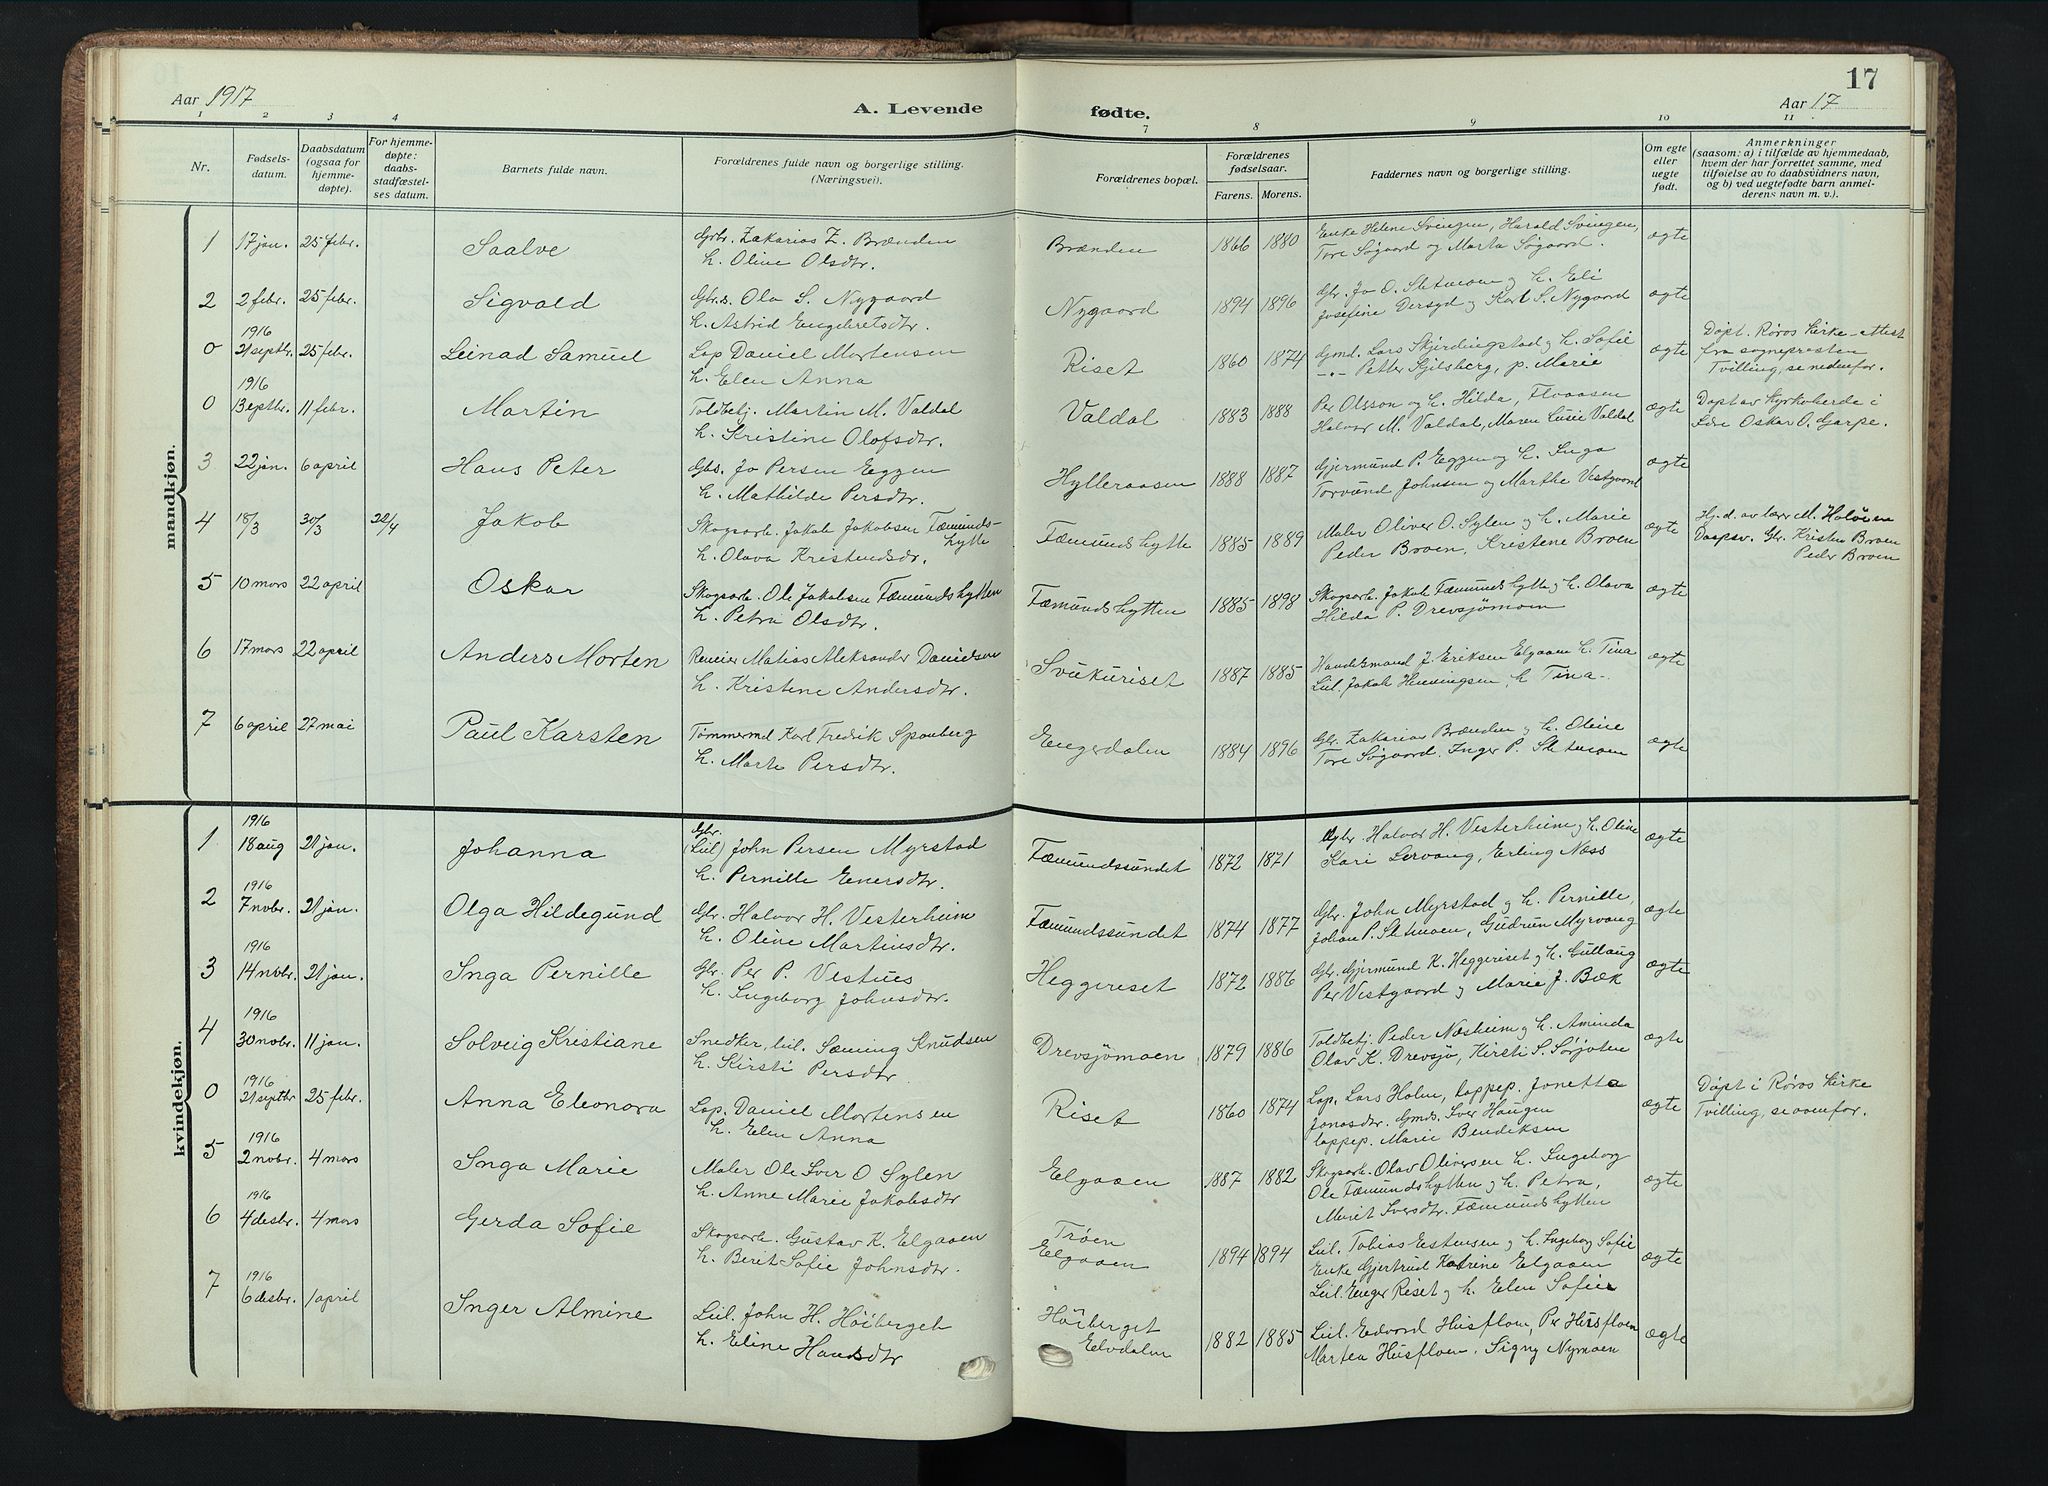 17
Aar 1917
A. Levende
fødte.
Aar 17
1 2 3 4 7 8 9 10 11
Nr.
Fødsels-
datum.
Daabsdatum
(ogsaa for
hjemme-
døpte).
For hjemme-
døpte:
daabs-
stadfæstel-
ses datum.
Barnets fulde navn.
Forældrenes fulde navn og borgerlige stilling.
(Næringsvei).
Forældrenes bopæl.
Forældrenes
fødselsaar.
Farens. Morens.
Faddernes navn og borgerlige stilling.
Om egte
eller
uegte
født.
Anmerkninger
(saasom: a) i tilfælde av hjemmedaab,
hvem der har forrettet samme, med
tilføielse av to daabsvidners navn,
og b) ved uegtefødte barn anmel-
derens navn m. v.).
mandkjøn.
1 17 jan. 25 febr. Saalve Gbr. Zakarias Z. Brænden Brænden 1866 1880 Enke Helene Svingen, Harald Svingen, ægte
h. Oline Olsdtr. Tore Søgaard og Marta Søgaard.
2 2 febr. 25 febr. Sigvald Gbr.s. Ola S. Nygaard Nygaard 1894 1896 Gbr. Jo O. Sletmoen og h. Eli ægte
h. Astrid Engebretsdtr. Josefine Dersyd og Karl S. Nygaard
1916
0 21 septbr. 25 febr. Leinad Samuel Lap Daniel Mortensen Riset 1860 1874 Gmd. Lars Skjerdingstad og h. Sofie ægte Døpt. Røros Kirke-attest
h. Elen Anna -"- Petter Sjilsberg, p. Marie fra sognepresten
Tvilling, se nedenfor.
1916
0 13 septbr. 11 febr. Martin Toldbetj. Martin M. Valdal Valdal 1883 1888 Per Olsson og h. Hilda, Floaasen ægte Døpt av Kyrkoherde i
h. Kristine Olofsdtr. Halvor M. Valdal, Maren Lusie Valdal Idre Oskar O. Garpe.
3 22 jan. 6 april Hans Peter Gbs. Jo Persen Eggen Hylleraasen 1888 1887 Gjermund P. Eggen og h. Inga ægte
h. Mathilde Persdtr. Torvund Johnsen og Marthe Vestgaard
4 18/3 30/3 22/4 Jakob Skogsarb. Jakob Jakobsen Fæmunds- Fæmundshytte 1885 1889 Maler Oliver O. Sylen og h. Marie ægte Hj.d. av lærer M. Holøien
hytte
h. Olava Kristensdr. Peder Broen, Kristene Broen Daapsv. Gbr. Kristen Broen
Peder Broen
5 10 mars 22 april Oskar Skogsarb. Ole Jakobsen Fæmundshytten Fæmundshytten 1885 1898 Skogsarb. Jakob Fæmundshytte og h. Olava ægte
h. Petra Olsdtr. Hilda P. Drevsjømoen
6 17 mars 22 april Anders Morten Reneier Matias Aleksander Danielsen Svukuriset 1887 1885 Handelsmand J. Eriksen Elgaaen h. Tina ægte
h. Kristene Andersdtr. Leil. Jakob Henningsen, h Tina-
7 6 april 27 mai Paul Karsten Tømmermd Karl Fredrik Spanberg Engerdalen 1884 1896 Gbr. Zakarias Brænden og h. Oline ægte
h. Marte Persdtr. Tore Søgaard. Inger P. Sletmoen
kvindekjøn.
1916
Gbr.
1 18 aug 21 jan. Johanna (Leil) John Persen Myrstad Fæmundssundet 1872 1871 Gbr. Halvor H. Vesterheim og h. Oline ægte
h. Pernille Enersdtr. Kari Lervang, Erling Næss
1916
2 7 novbr. 21 jan. Olga Hildegund Gbr. Halvor H. Vesterheim Fæmundssundet 1874 1877 Gbr. John Myrstad og h. Pernille, ægte
h. Oline Martinsdtr. Johan P. Sletmoen, Gudrun Myrvang
1916
3 14 novbr. 21 jan. Inga Pernille Gbr. Per P. Vestues Heggeriset 1872 1886 Gbr. Gjermund K. Heggeriset og h. Gullaug ægte
h. Ingeborg Johnsdtr. Per Vestgaard og Marie J. Bæk
1916
4 30 novbr. 11 jan. Solveig Kristiane Snedker, leil. Sæming Knudsen Drevsjømoen 1879 1886 Toldbetj. Peder Næsheim og h. Aminda ægte
h. Kirsti Persdtr Olav K. Drevsjø, Kirsti S. Sørjoten
1916
0 21 septbr 25 febr. Anna Eleonora Lap. Daniel Mortensen Riset 1860 1874 Lap. Lars Holm, lappep. Jonetta ægte Døpt i Røros Kirke
h. Elen Anna Jonasdtr. Gmds. Iver Haugen Tvilling, se ovenfor.
lappep. Marie Bendiksen
1916
5 2 novbr. 4 mars Inga Marie Maler Ole Iver O Sylen Elgaaen 1887 1882 Skogsarb. Olav Oliversen h. Ingeborg ægte
h. Anne Marie Jakobsdtr Ole Fæmundshytten og h. Petra,
Marit Iversdtr. Fæmundshytten
1916
6 4 desbr. 4 mars Gerda Sofie Skogsarb. Gustav K. Elgaaen Trøen 1894 1894 Leil. Tobias Estensen og h. Ingeborg Sofie ægte
h. Berit Sofie Johnsdtr. Elgaaen Enke Gjertrud Katrine Elgaaen
Leil. Enger Riset og h. Elen Sofie
1916
7 6 desbr. 1 april Inger Almine Leil. John H. Høiberget Høiberget 1882 1885 Leil. Edvard Husfloen, Per Husfloen ægte
h. Eline Hansdtr Elvdalen Martea Husfloen. Signy Nymoen